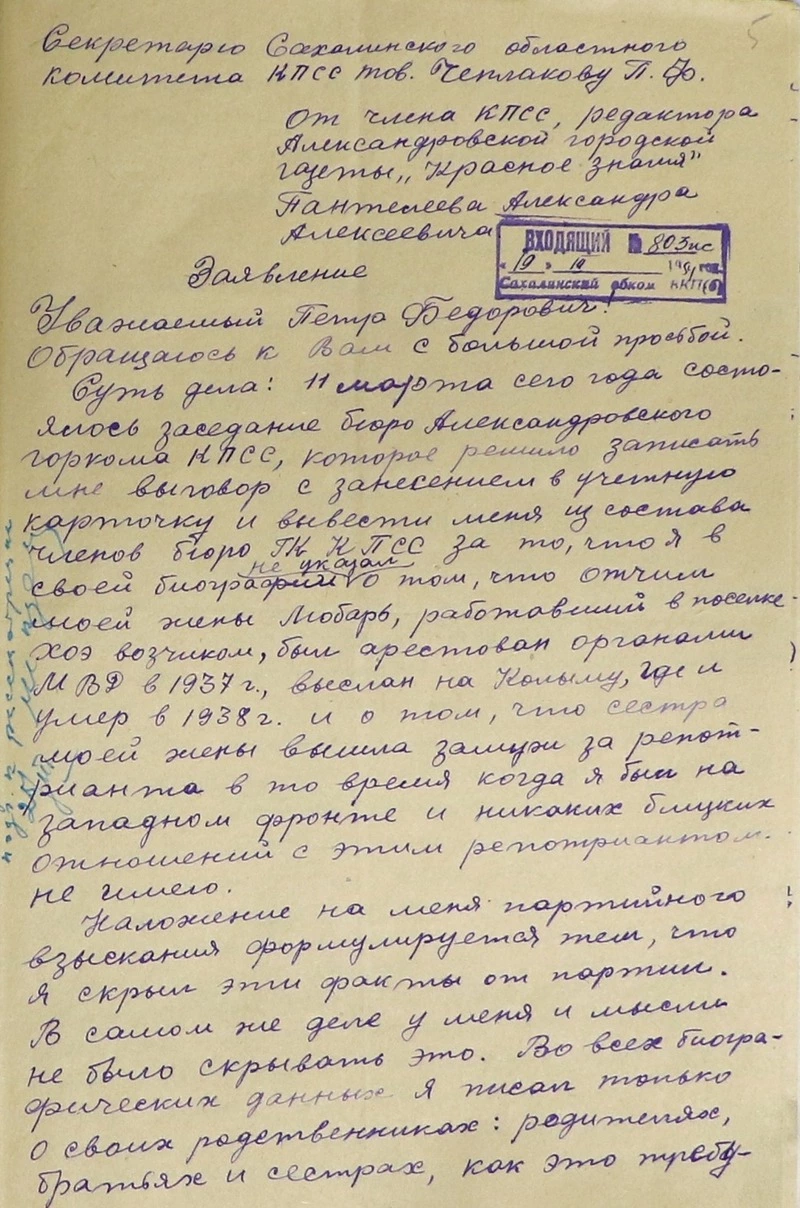 5
Секретарю Сахалинского областного
комитета КПСС тов. Чеплакову П. Ф.
От члена КПСС, редактора
Александровской городской
газеты „Красное знамя"
Пантелеева Александра
Алексеевича
ВХОДЯЩИЙ № 803пс
"19"
Сахалинский обком ВКП(б)
Заявление
Уважаемый Петр Федорович!
Обращаюсь к Вам с большой просьбой.
Суть дела: 11 марта сего года состо-
ялось заседание бюро Александровского
горкома КПСС, которое решило записать
мне выговор с занесением в учетную
карточку и вывести меня из состава
членов бюро ГК КПСС за то, что я в
своей биографии не указал о том, что отчим
моей жены Любарь, работавший в поселке
Хоэ возчиком, был арестован органами
МВД в 1937 г., выслан на Колыму, где и
умер в 1938 г. и о том, что сестра
моей жены вышла замуж за репот-
рианта в то время когда я был на
западном фронте и никаких близких
отношений с этим репотриантом
не имею.
Наложение на меня партийного
взыскания формулируется тем, что
я скрыл эти факты от партии.
В самом же деле у меня и мысли
не было скрывать это. Во всех биогра-
фических данных я писал только
о своих родственниках: родителях,
братьях и сестрах, как это требу-